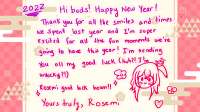 2022
Hi buds! Happy New Year!
Thank you for all the smiles and times
we spent last year and I'm super
excited for all the fun moments we're
going to have this year! I'm sending
you all my good luck
unlucky!!)
Rosemi good luck beam!!
Yours truly, Rosemi